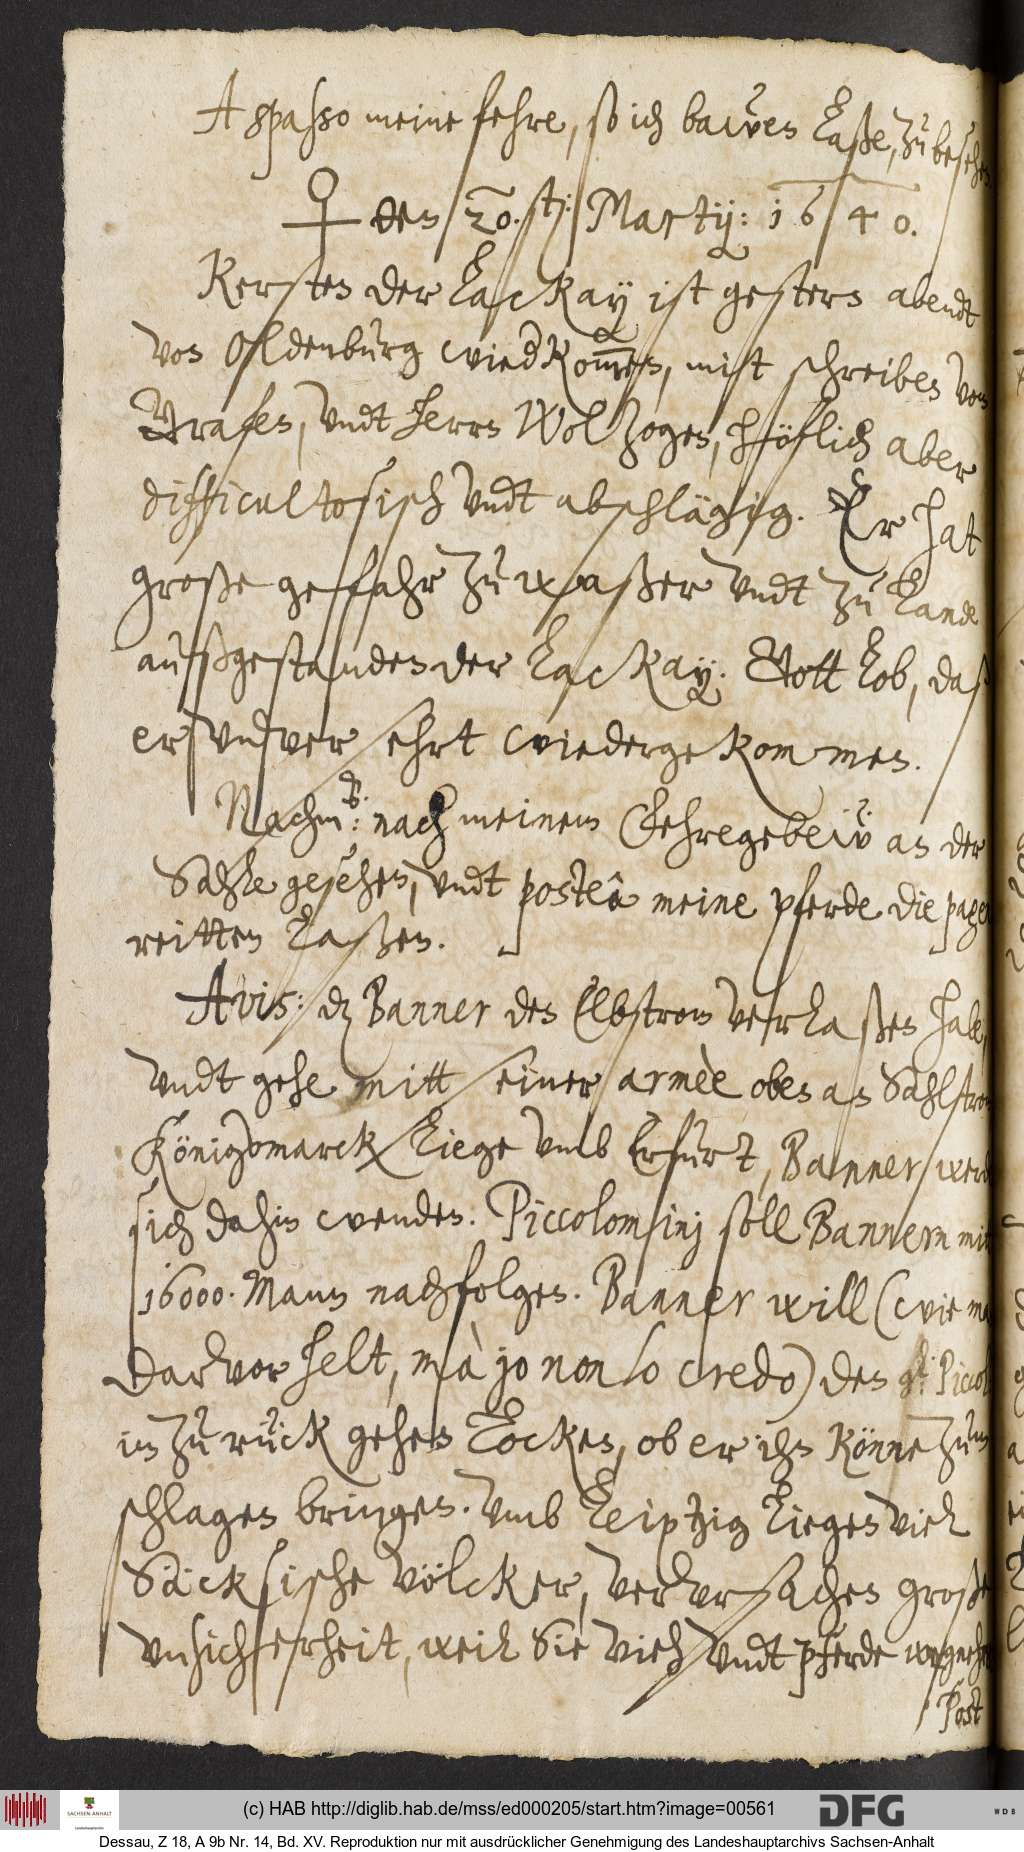 A spasso meine fehre, so ich bawen laße, zu besehen
♀ den 20. sten: Martij: 1640.
Kersten der Lackay ist gestern abendt
von Oldenburg wiedkom̅en, mitt schreiben vom
Grafen, vndt herrn Wolzogen, höflich aber
difficultosisch vndt abschlägig. Er hat
große geffahr zu waßer vndt zu Lande
außgestanden der Lackay. Gott lob, daß
er vnversehrt wiedergekommen.
Nachm: nach meinem Fehregebeẅ an der
Sahle gesehen, vndt posteâ meine pferde die pagen
reitten laßen.
Avis: dz Banner den Elbstrom verlaßen habe,
vndt gehe mitt seiner armèe oben am Sahlstrom
Königsmarck liege vmb Erfurt, Banner werde
sich dahin wenden. Piccolominj soll Bannern mit
16000. Mann nachfolgen. Banner will (wie man
darvor helt, mà jo non lo credo) den gl: Piccol
im zurück gehen locken, ob er ihn könne zum
schlagen bringen. Vmb Leiptzig liegen viel
Säcksische völcker, verursachen große
vnsicherheit, weil Sie vieh vndt pferde wegnehmen
Post
(c) HAB http://diglib.hab.de/mss/ed000205/start.htm?image=00561
SACHSEN-ANHALT
DFG
WDB
Dessau, Z 18, A 9b Nr. 14, Bd. XV. Reproduktion nur mit ausdrücklicher Genehmigung des Landeshauptarchivs Sachsen-Anhalt